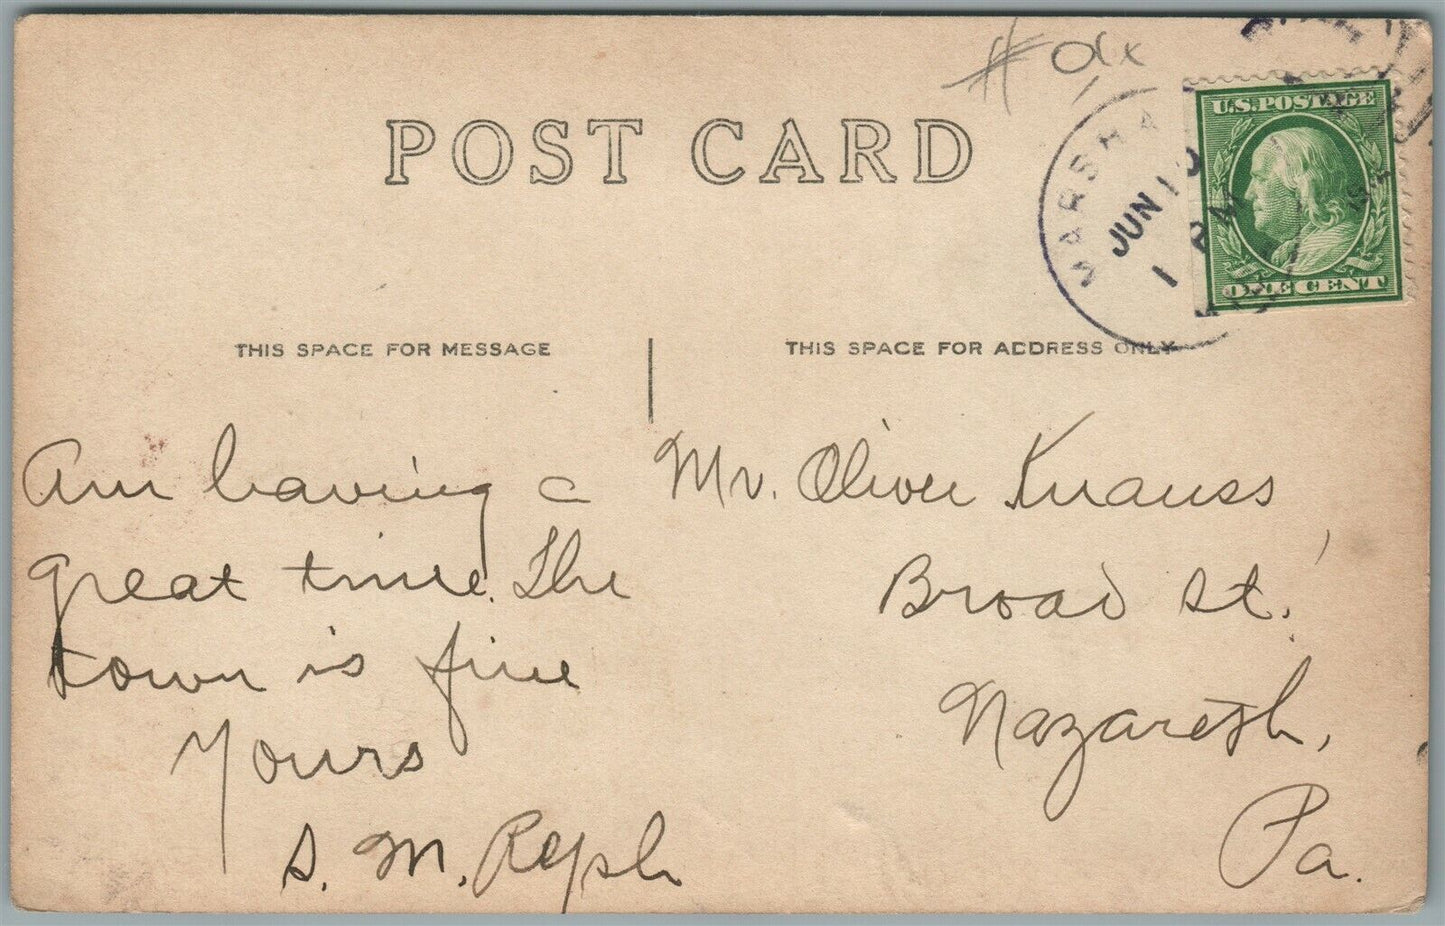 POST CARD
U.S. POSTAGE
ONE CENT
MARSHA
JUN 10
1
THIS SPACE FOR MESSAGE
THIS SPACE FOR ADDRESS ONLY
Am having a
great time. The
town is fine
Yours
S. M. Reph
Mr. Oliver Knauss
Broad St.
Nazareth,
Pa.